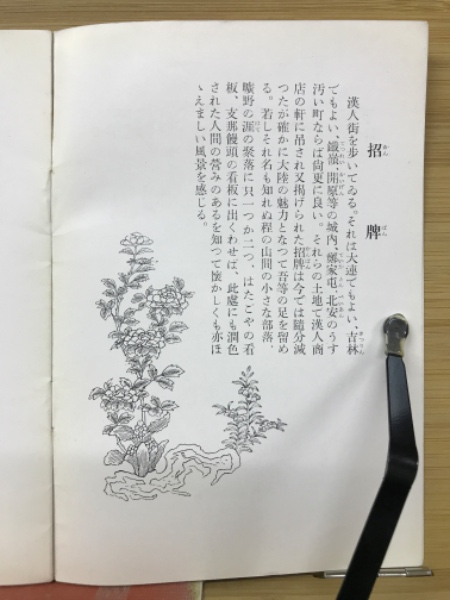 招牌
漢人街を歩いてゐる。それは大連でもよい、吉林
でもよい、鐵嶺、開原等の城内、鄭家屯、北安のうす
汚い町ならば尚更に良い。それらの土地で漢人商
店の軒に吊され又揭げられた招牌は今では隨分減
つたが確かに大陸の魅力となつて吾等の足を留め
る。若しそれ名も知れぬ程の山間の小さな部落、
曠野の涯の聚落に只一つか二つ、はたごやの看
板、支那饅頭の看板に出くわせば、此處にも潤色
された人間の營みのあるを知つて懷かしくも亦ほ
ゝえましい風景を感じる。